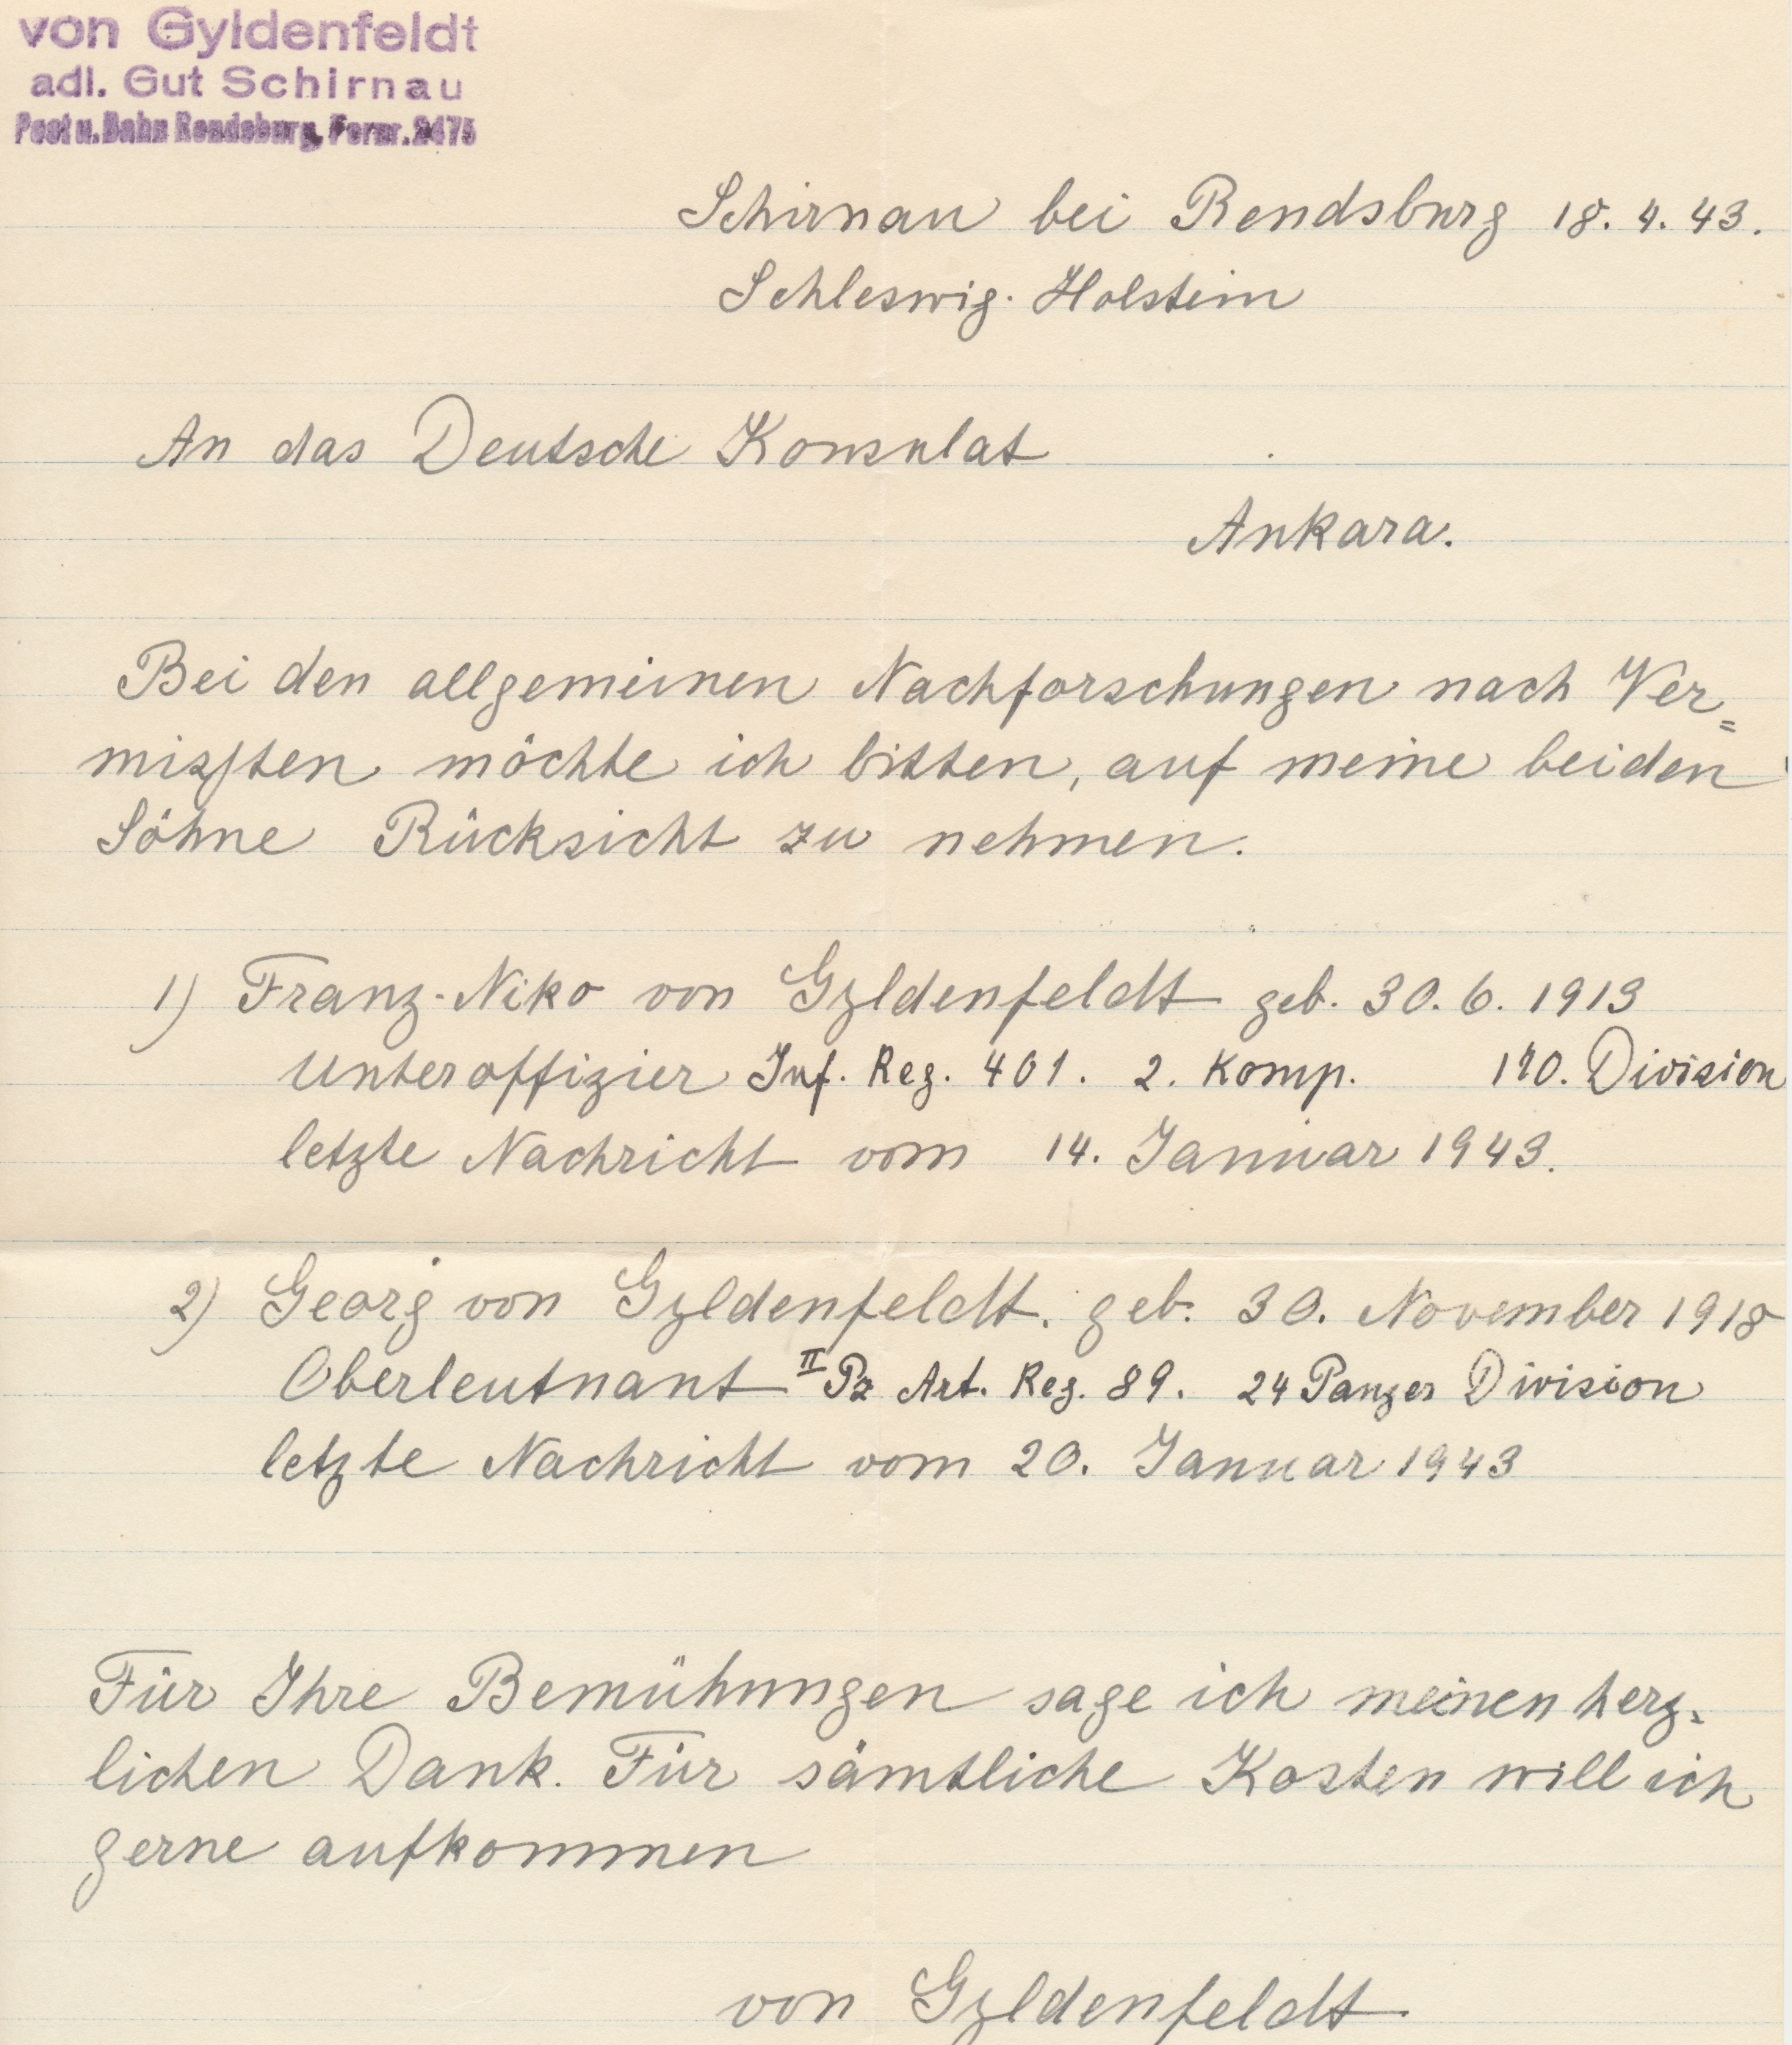 von Gyldenfeldt
adl. Gut Schirnau
Post u. Bahn Rendsburg, Fernr. 2475
Schirnau bei Rendsburg 18. 4. 43.
Schleswig-Holstein
An das Deutsche Konsulat
Ankara.
Bei den allgemeinen Nachforschungen nach Ver=
mißten möchte ich bitten, auf meine beiden
Söhne Rücksicht zu nehmen.
1) Franz-Niko von Gyldenfeldt geb. 30. 6. 1913
Unteroffizier Inf. Reg. 401. 2. Komp. 170. Division
letzte Nachricht vom 14. Januar 1943.
2) Georg von Gyldenfeldt. geb. 30. November 1918
Oberleutnant II Pz Art. Reg. 89. 24 Panzer Division
letzte Nachricht vom 20. Januar 1943
Für Ihre Bemühungen sage ich meinen herz-
lichen Dank. Für sämtliche Kosten will ich
gerne aufkommen
von Gyldenfeldt